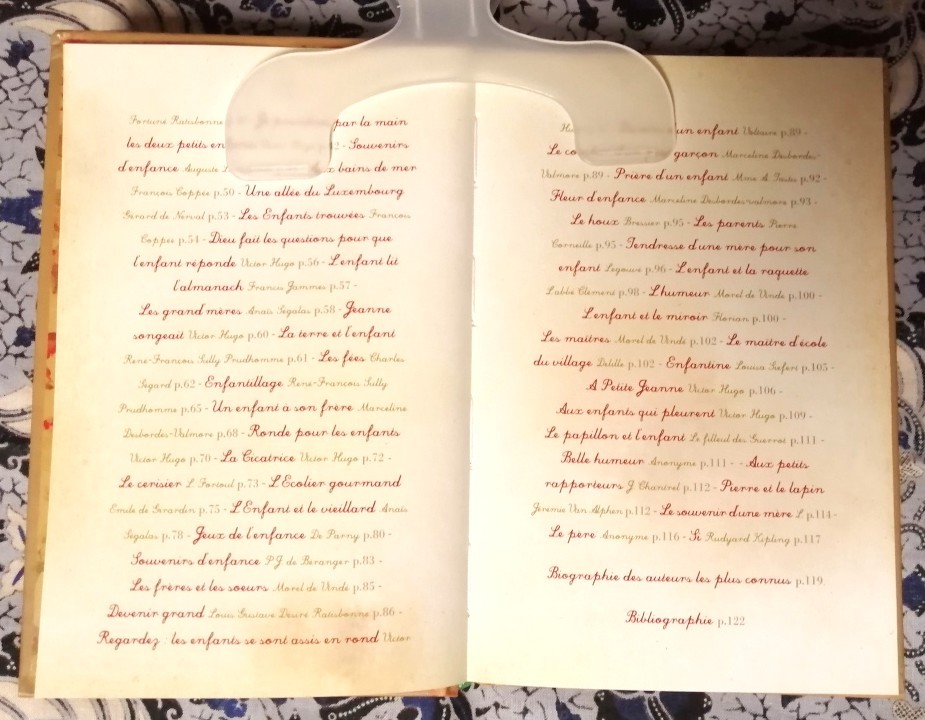 Fortuné Ratisbonne par la main
les deux petits en - Souvenirs
d'enfance Auguste bains de mer
François Coppée p.50 - Une allée du Luxembourg
Gérard de Nerval p.53 - Les Enfants trouvées François
Coppée p.54 - Dieu fait les questions pour que
l'enfant réponde Victor Hugo p.56 - L'enfant lit
l'almanach Francis Jammes p.57 -
Les grand mères Anaïs Ségalas p.58 - Jeanne
songeait Victor Hugo p.60 - La terre et l'enfant
René-François Sully Prudhomme p.61 - Les fées Charles
Ségard p.62 - Enfantillage René-François Sully
Prudhomme p.65 - Un enfant à son frère Marceline
Desbordes-Valmore p.68 - Ronde pour les enfants
Victor Hugo p.70 - La Cicatrice Victor Hugo p.72 -
Le cerisier L Fortoul p.73 - L'Ecolier gourmand
Emile de Girardin p.75 - L'Enfant et le vieillard Anaïs
Ségalas p.78 - Jeux de l'enfance De Parny p.80 -
Souvenirs d'enfance P.J de Béranger p.83 -
Les frères et les soeurs Morel de Vindé p.85 -
Devenir grand Louis Gustave Désiré Ratisbonne p.86 -
Regardez : les enfants se sont assis en rond Victor
un enfant Voltaire p.89 -
Le garçon Marceline Desbordes-
Valmore p.89 - Prière d'un enfant Mme A. Tastu p.92 -
Fleur d'enfance Marceline Desbordes-valmore p.93 -
Le houx Bressier p.95 - Les parents Pierre
Corneille p.95 - Tendresse d'une mère pour son
enfant Legouvé p.96 - L'enfant et la raquette
L'abbé Clément p.98 - L'humeur Morel de Vindé p.100 -
L'enfant et le miroir Florian p.100 -
Les maîtres Morel de Vindé p.102 - Le maître d'école
du village Delille p.102 - Enfantine Louisa Siefert p.105 -
A Petite Jeanne Victor Hugo p.106 -
Aux enfants qui pleurent Victor Hugo p.109 -
Le papillon et l'enfant Le filleul des Guerrot p.111 -
Belle humeur Anonyme p.111 - - Aux petits
rapporteurs J Chantrel p.112 - Pierre et le lapin
Jérémie Van Alphen p.112 - Le souvenir d'une mère L p.114 -
Le père Anonyme p.116 - Si Rudyard Kipling p.117
Biographie des auteurs les plus connus p.119
Bibliographie p.122